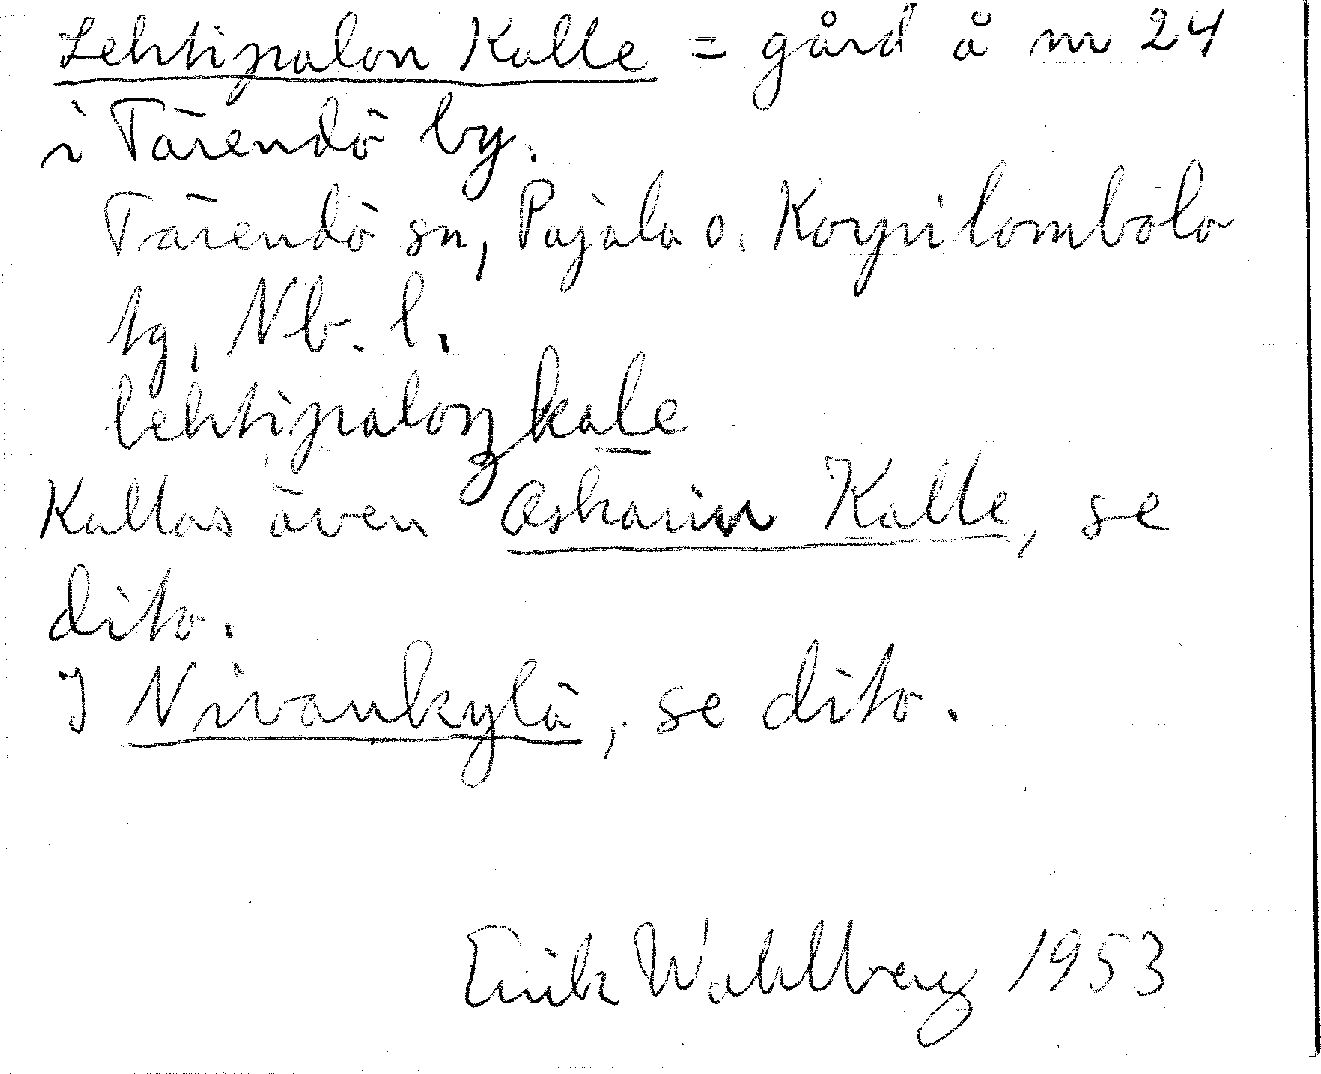 Lehtipalon Kalle = gård å nr 24
i Tärendö by.
Tärendö sn, Pajala o. Korpilombolo
tg, Nb. l.
lehtipaloŋkale
Kallas även Oskarin Kalle, se
dito.
I Nivankylä, se dito.
Erik Wahlberg 1953